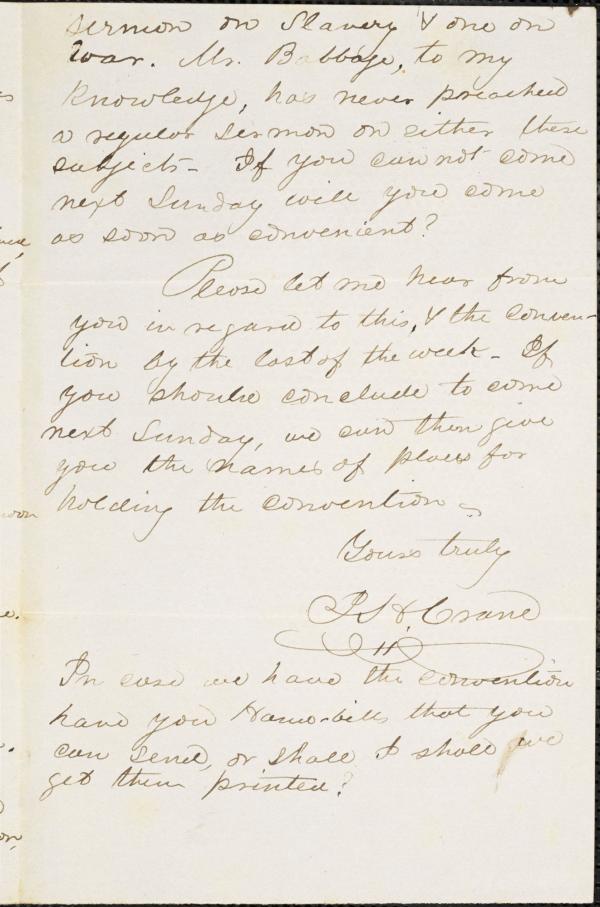 sermon on Slavery & one on
War. Mr. Babbage, to my
knowledge, has never preached
a regular sermon on either these
subjects - If you can not come
next Sunday will you come
as soon as convenient?
Please let me hear from
you in regard to this, & the conven-
tion by the last of the week - If
you should conclude to come
next Sunday, we can then give
you the names of places for
holding the convention
Yours truly
J. S. H. Crane
In case we have the convention
have you Hand-bills that you
can send, or shall I shall we
get them printed?